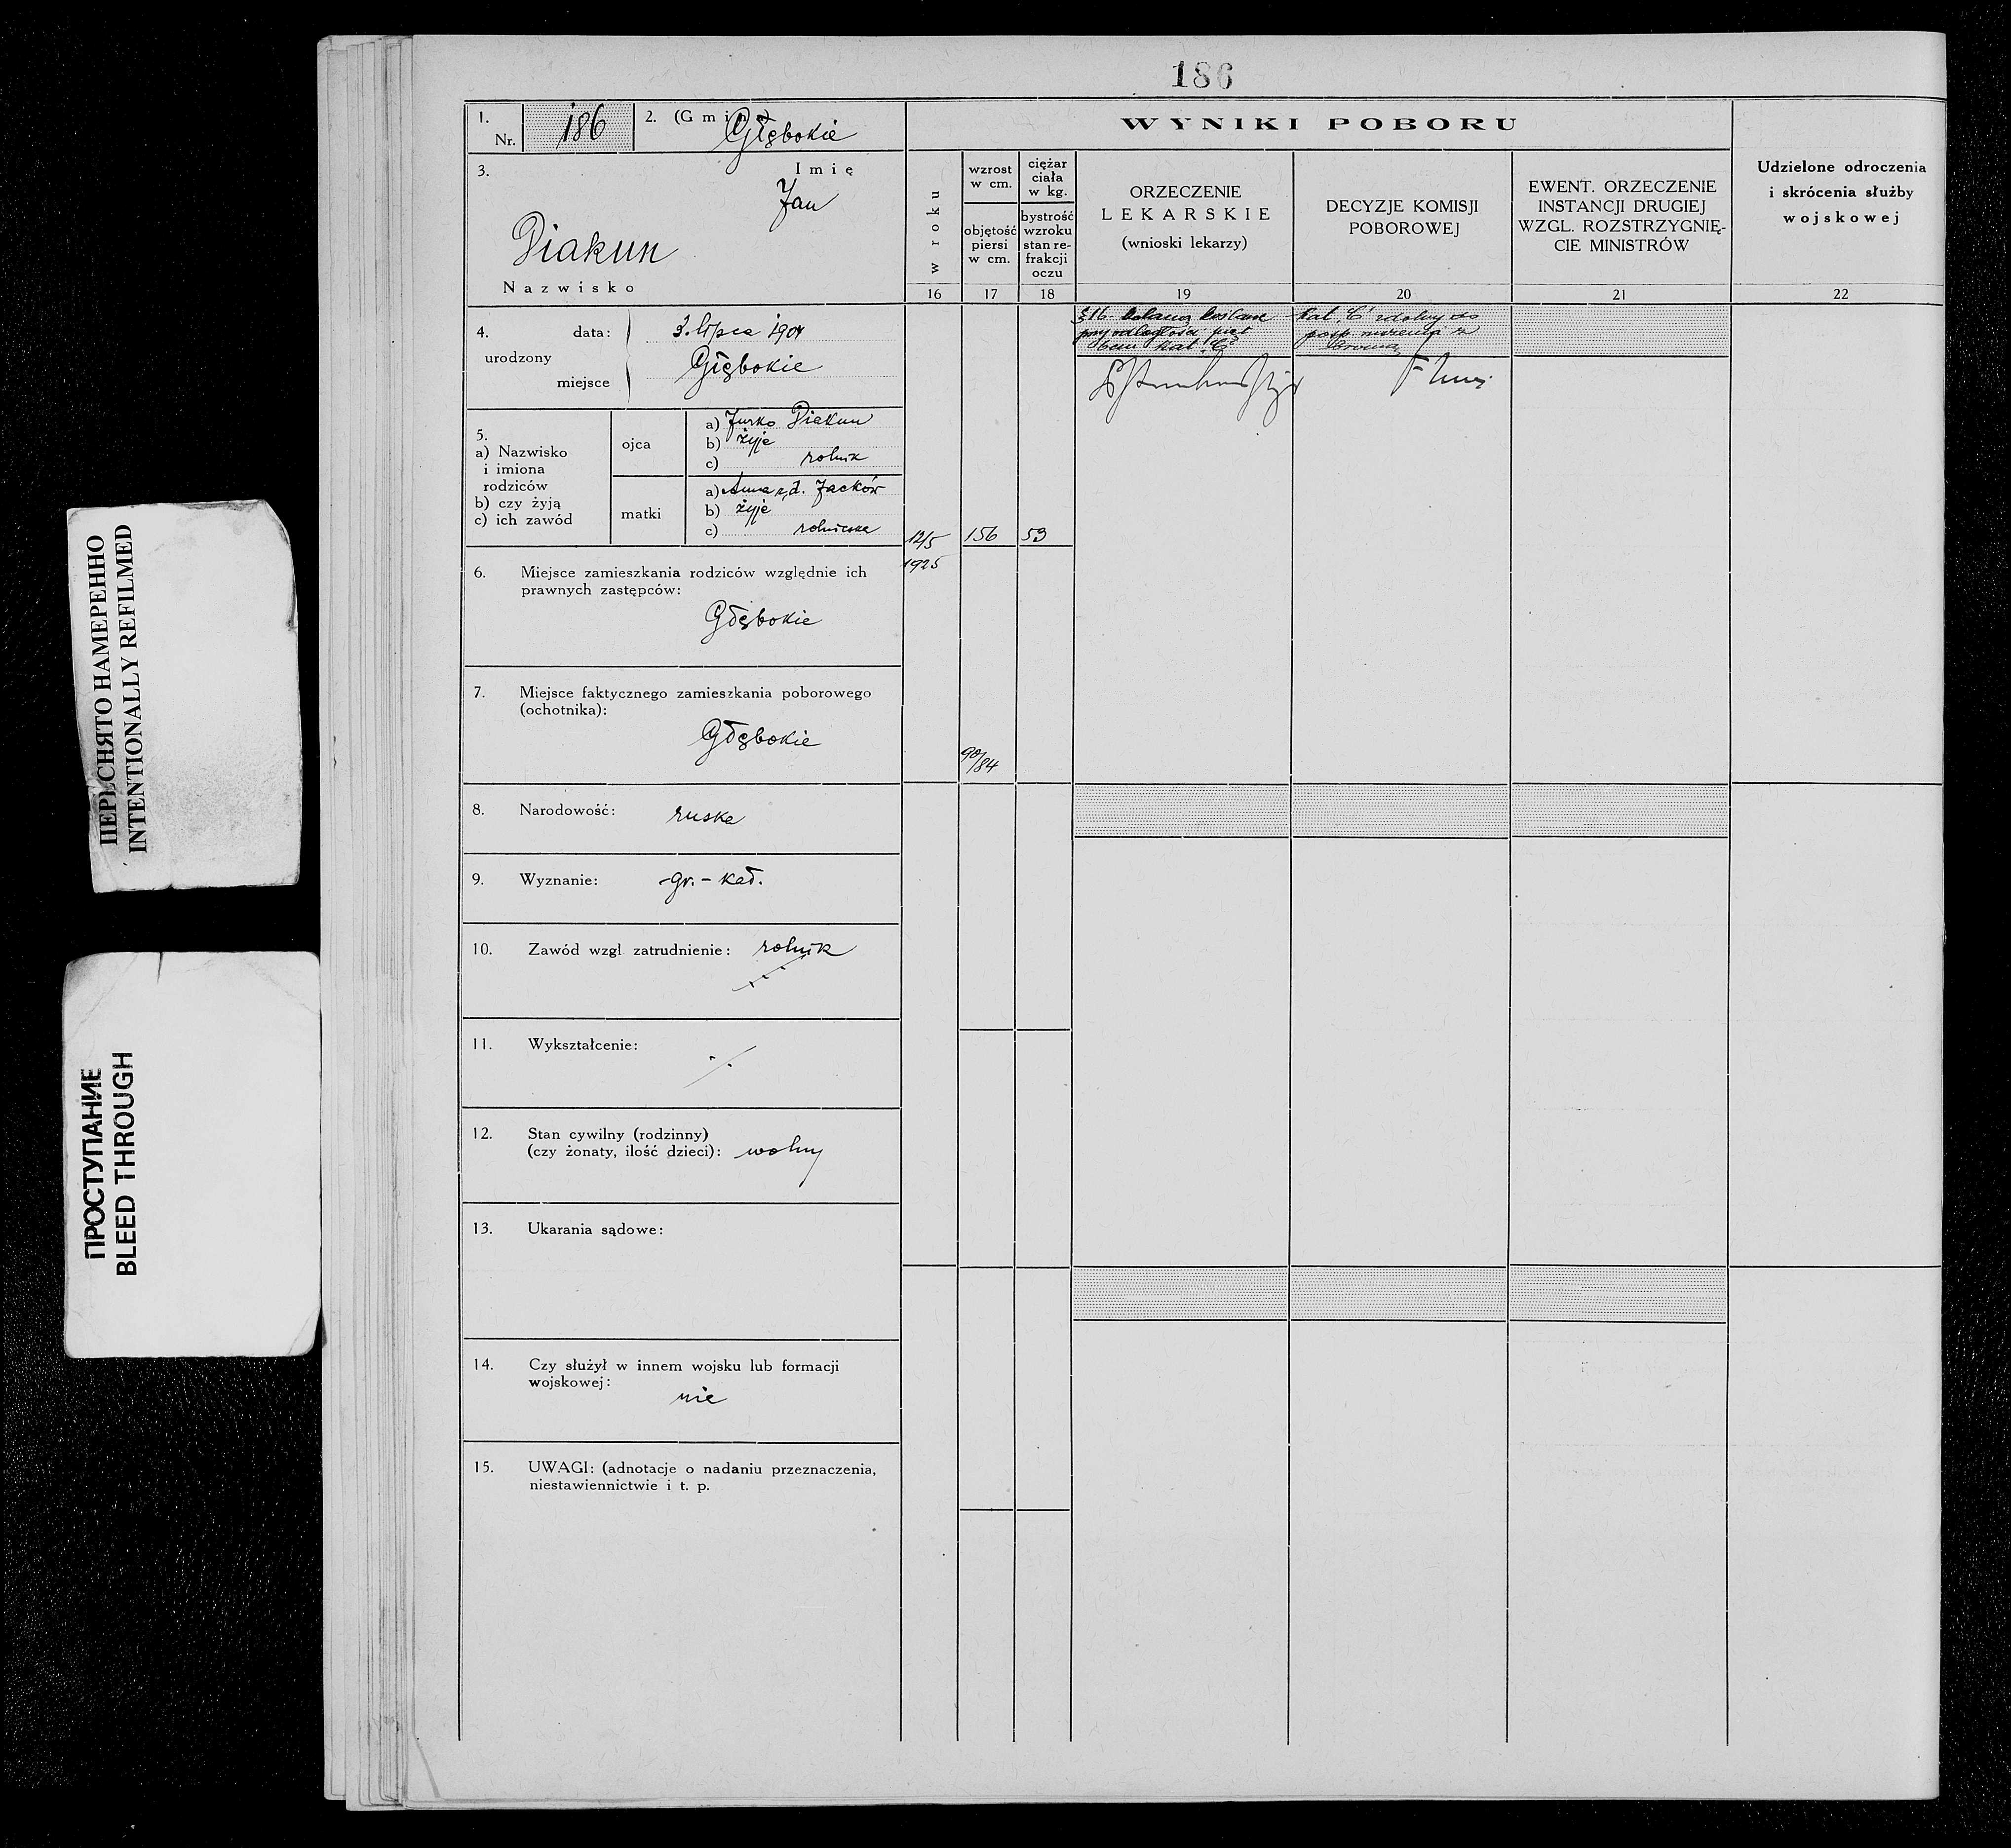 186
1.
Nr.
186
2. (Gmina)
Głębokie
3.
Imię
Jan
Diakun
Nazwisko
4.
urodzony
data:
3. lipca 1904
miejsce
Głębokie
5.
a) Nazwisko
i imiona
rodziców
b) czy żyją
c) ich zawód
ojca
a) Jurko Diakun
b) żyje
c) rolnik
matki
a) Anna z d. Jacków
b) żyje
c) rolniczka
6. Miejsce zamieszkania rodziców względnie ich
prawnych zastępców:
Głębokie
7. Miejsce faktycznego zamieszkania poborowego
(ochotnika):
Głębokie
8. Narodowość: ruska
9. Wyznanie: gr.-kat.
10. Zawód wzgl. zatrudnienie: rolnik
11. Wykształcenie:
12. Stan cywilny (rodzinny)
(czy żonaty, ilość dzieci): wolny
13. Ukarania sądowe:
14. Czy służył w innem wojsku lub formacji
wojskowej:
nie
15. UWAGI: (adnotacje o nadaniu przeznaczenia,
niestawiennictwie i t. p.
WYNIKI POBORU
w roku
16
12/5
1925
wzrost
w cm.
objętość
piersi
w cm.
17
156
90/84
ciężar
ciała
w kg.
bystrość
wzroku
stan re-
frakcji
oczu
18
53
ORZECZENIE
LEKARSKIE
(wnioski lekarzy)
19
§16.
kat. "C"
DECYZJE KOMISJI
POBOROWEJ
20
Kat. "C" zdolny do
posp. ruszenia z
bronią
EWENT. ORZECZENIE
INSTANCJI DRUGIEJ
WZGL. ROZSTRZYGNIĘ-
CIE MINISTRÓW
21
Udzielone odroczenia
i skrócenia służby
wojskowej
22
ПЕРЕСНЯТО НАМЕРЕННО
INTENTIONALLY REFILMED
ПРОСТУПАНИЕ
BLEED THROUGH